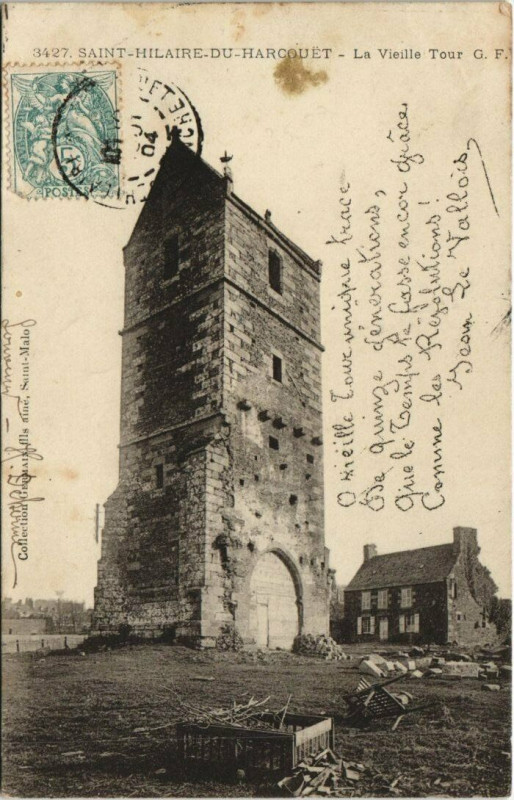 3427. SAINT-HILAIRE-DU-HARCOUËT - La Vieille Tour G. F.
POSTE
04
O Vieille Tour unique trace
De quinze générations,
Que le Temps te fasse encor grâce
Comme les Révolutions!
Jean Le Vallois
Collection GERMAIN, fils aîné, Saint-Malo